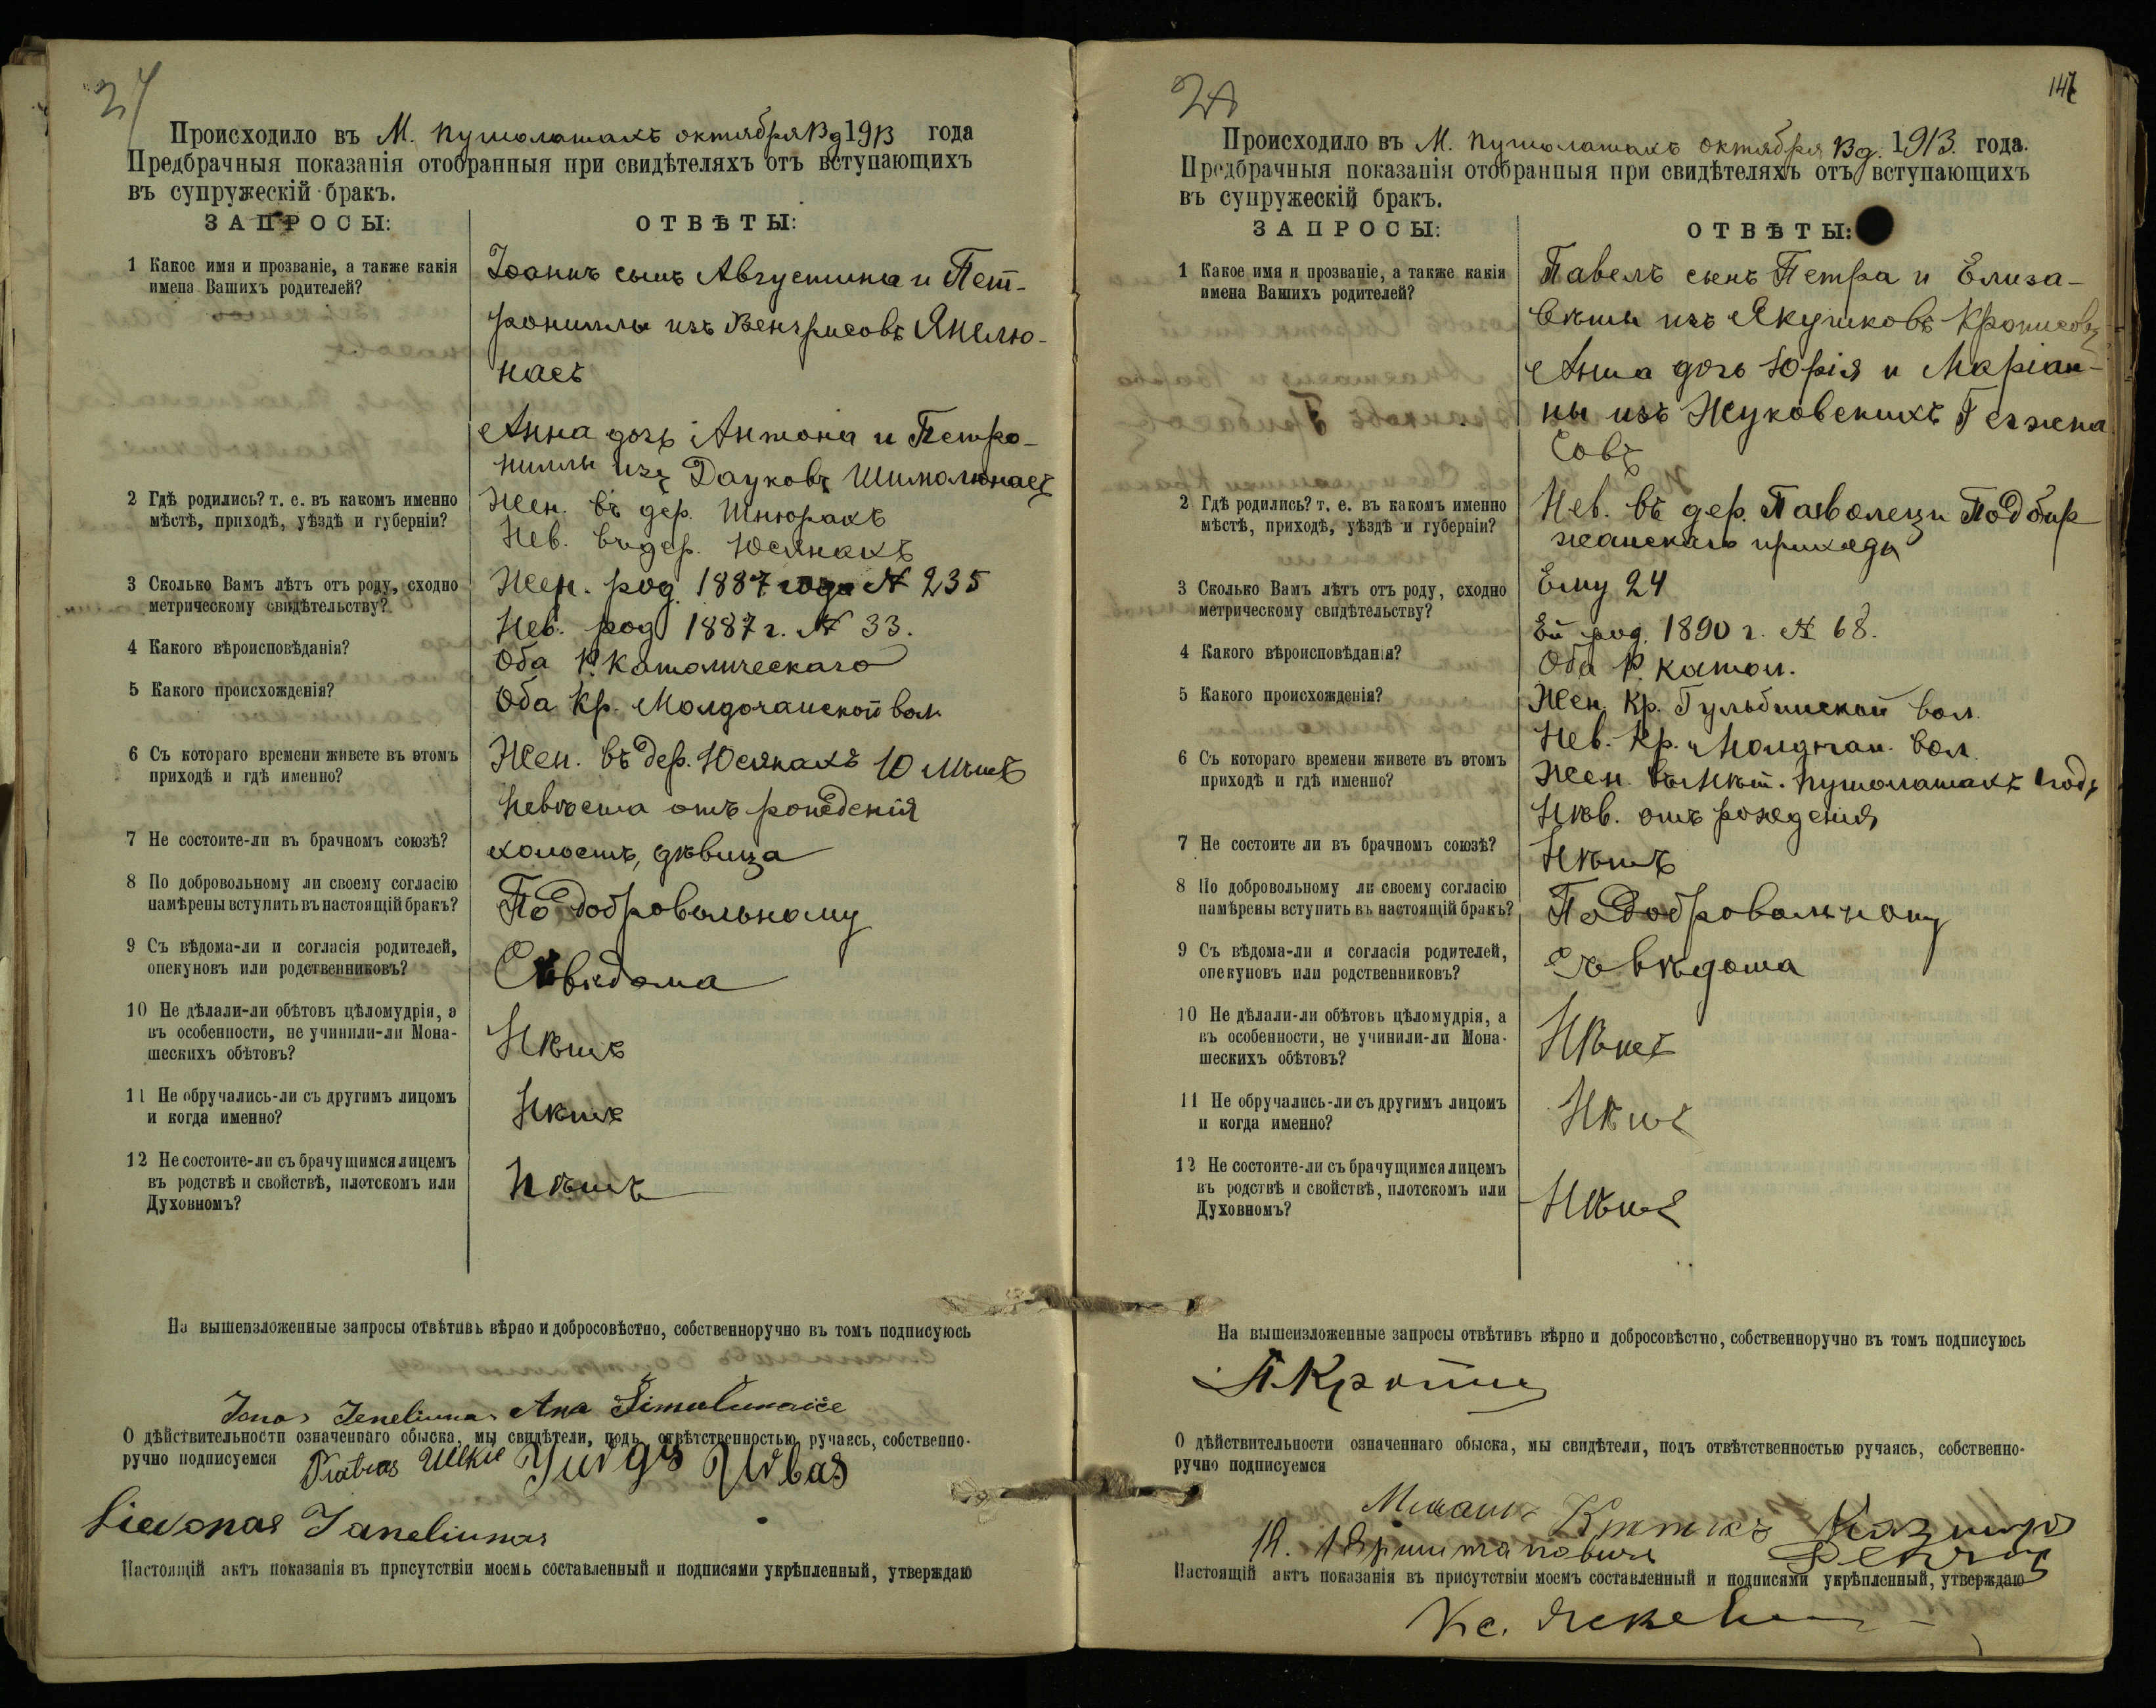 24
Происходило въ М. Пушолатахъ октября 13 д 1913 года
Предбрачныя показанія отобранныя при свидѣтеляхъ отъ вступающихъ
въ супружескій бракъ.
ЗАПРОСЫ: ОТВѢТЫ:
1 Какое имя и прозваніе, а также какія
имена Вашихъ родителей?
Іоаннъ сынъ Августина и Пет-
рониллы изъ Венгрисовъ Янелю-
насъ
Анна дочь Антона и Петро-
ниллы изъ Дауковъ Шимолюнасъ
2 Гдѣ родились? т. е. въ какомъ именно
мѣстѣ, приходѣ, уѣздѣ и губерніи?
Жен. въ дер. Шнюракъ
Нев. въ дер. Юсянахъ
3 Сколько Вамъ лѣтъ отъ роду, сходно
метрическому свидѣтельству?
Жен. род. 1887 года № 235
Нев. род 1887 г. № 33.
4 Какого вѣроисповѣданія?
Оба Р. Католическаго
5 Какого происхожденія?
Оба Кр. Молдочанской вол.
6 Съ котораго времени живете въ этомъ
приходѣ и гдѣ именно?
Жен. въ дер. Юсянахъ 10 лѣтъ
Невѣста отъ рождения
7 Не состоите-ли въ брачномъ союзѣ?
холостъ, дѣвица
8 По добровольному ли своему согласію
намѣрены вступить въ настоящій бракъ?
По добровольному
9 Съ вѣдома-ли и согласія родителей,
опекуновъ или родственниковъ?
Съ вѣдома
10 Не дѣлали-ли обѣтовъ цѣломудрія, а
въ особенности, не учинили-ли Мона-
шескихъ обѣтовъ?
Нѣтъ
11 Не обручались-ли съ другимъ лицомъ
и когда именно?
Нѣтъ
12 Не состоите-ли съ брачущимся лицемъ
въ родствѣ и свойствѣ, плотскомъ или
Духовномъ?
Нѣтъ
На вышеизложенные запросы отвѣтивъ вѣрно и добросовѣстно, собственноручно въ томъ подписуюсь
Jonas Jeneliunas Ana Šimulunaiče
О дѣйствительности означеннаго обыска, мы свидѣтели, подъ отвѣтственностью ручаясь, собственно-
ручно подписуемся
Jurgis Urbas
Lievonas Janeliunas
Настоящій актъ показанія въ присутствіи моемъ составленный и подписями укрѣпленный, утверждаю
Происходило въ М. Пушолатахъ октября 13 д. 1913. года.
Предбрачныя показанія отобранныя при свидѣтеляхъ отъ вступающихъ
въ супружескій бракъ.
ЗАПРОСЫ: ОТВѢТЫ:
1 Какое имя и прозваніе, а также какія
имена Вашихъ родителей?
Павелъ сынъ Петра и Елиза-
веты изъ Якучиковъ
Анна дочь Юрія и Маріан-
ны изъ Жуковскихъ
2 Гдѣ родились? т. е. въ какомъ именно
мѣстѣ, приходѣ, уѣздѣ и губерніи?
Нев. въ дер. Паволеци Подбир
жанскаго прихода
3 Сколько Вамъ лѣтъ отъ роду, сходно
метрическому свидѣтельству?
Ему 24
Ей род. 1890 г. № 68.
4 Какого вѣроисповѣданія?
Оба Р. Катол.
5 Какого происхожденія?
Жен. Кр. Гульбинской вол.
Нев. Кр. Молдочан. вол.
6 Съ котораго времени живете въ этомъ
приходѣ и гдѣ именно?
Жен. въ мѣст. Пушолатахъ 1 годъ
Нѣв. отъ рождения
7 Не состоите ли въ брачномъ союзѣ?
Нѣтъ
8 По добровольному ли своему согласію
намѣрены вступить въ настоящій бракъ?
По добровольному
9 Съ вѣдома-ли и согласія родителей,
опекуновъ или родственниковъ?
Съ вѣдома
10 Не дѣлали-ли обѣтовъ цѣломудрія, а
въ особенности, не учинили-ли Мона-
шескихъ обѣтовъ?
Нѣтъ
11 Не обручались-ли съ другимъ лицомъ
и когда именно?
Нѣтъ
12 Не состоите-ли съ брачущимся лицемъ
въ родствѣ и свойствѣ, плотскомъ или
Духовномъ?
Нѣтъ
На вышеизложенные запросы отвѣтивъ вѣрно и добросовѣстно, собственноручно въ томъ подписуюсь
О дѣйствительности означеннаго обыска, мы свидѣтели, подъ отвѣтственностью ручаясь, собственно-
ручно подписуемся
Настоящій актъ показанія въ присутствіи моемъ составленный и подписями укрѣпленный, утверждаю
Кс.